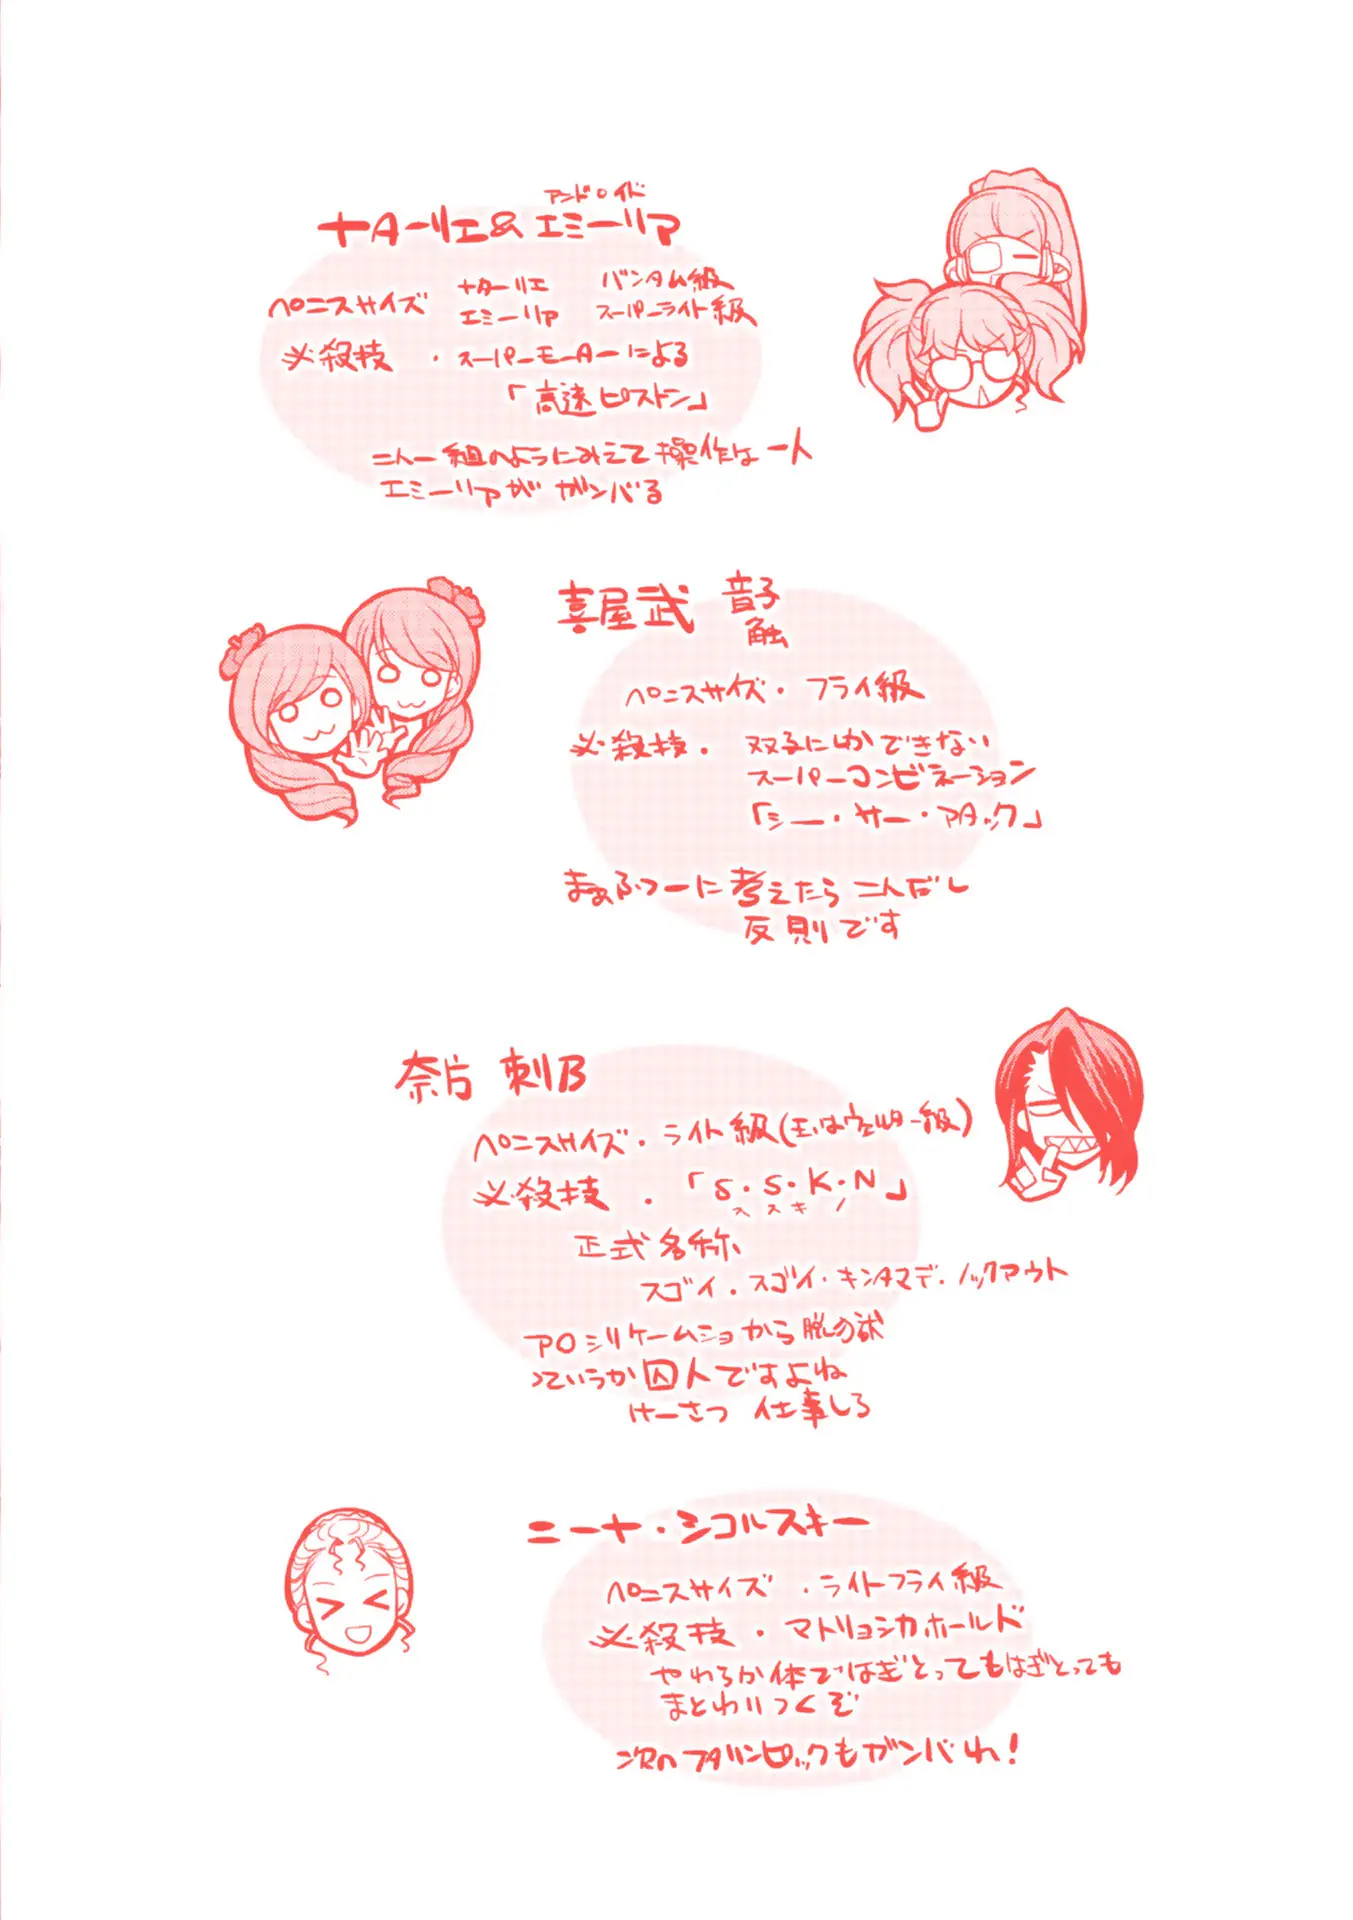 アンドロイド
ナターリエ&エミーリア
ペニスサイズ ナターリエ バンタム級
エミーリア スーパーライト級
必殺技・スーパーモーターによる
「高速ピストン」
二人一組のようにみえて操作は一人
エミーリアがガンバる
喜屋武 音子
触
ペニスサイズ・フライ級
必殺技・双子にしかできない
スーパーコンビネーション
「シー・サー・アタック」
まぁふつーに考えたら二人だし
反則です
奈片 刺B
ペニスサイズ・ライト級(玉はウェルター級)
必殺技・「S・S・K・N」
ススキノ
正式名称
スゴイ・スゴイ・キンタマデ・ノックアウト
アOシリケームショから脱の獄
っていうか囚人ですよね
けーさつ 仕事しろ
ニーナ・シコルスキー
ペニスサイズ・ライトフライ級
必殺技・マトリョシカホールド
やわらか体ではぎとってもはぎとっても
まとわりつくぞ
次のフタリンピックもガンバれ!